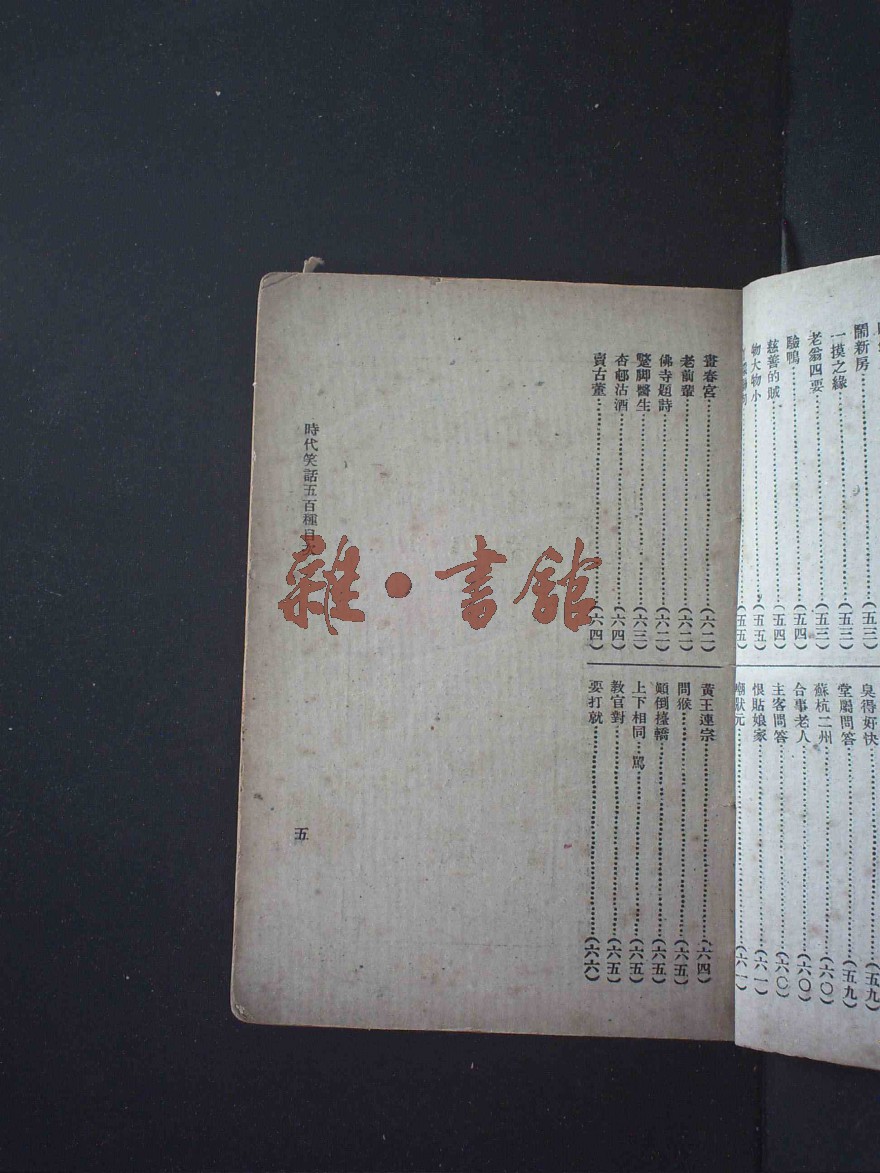 鬧新房……(五三)
一摸之緣……(五三)
老翁四要……(五三)
驗鴨……(五四)
慈善的賊……(五四)
物大物小……(五五)
(五五)
臭得好快……(五九)
堂屬問答……(五九)
蘇杭二州……(六〇)
合事老人……(六〇)
主客問答……(六〇)
恨貼娘家……(六一)
嘲狀元……(六一)
畫春宮……(六二)
老前輩……(六二)
佛寺題詩……(六二)
蹩脚醫生……(六三)
杏邨沽酒……(六四)
賣古董……(六四)
黃王連宗……(六四)
問候……(六五)
顛倒擡轎……(六五)
上下相同一罵……(六五)
教官對……(六五)
要打就……(六六)
時代笑話五百種目
五
雜·書館